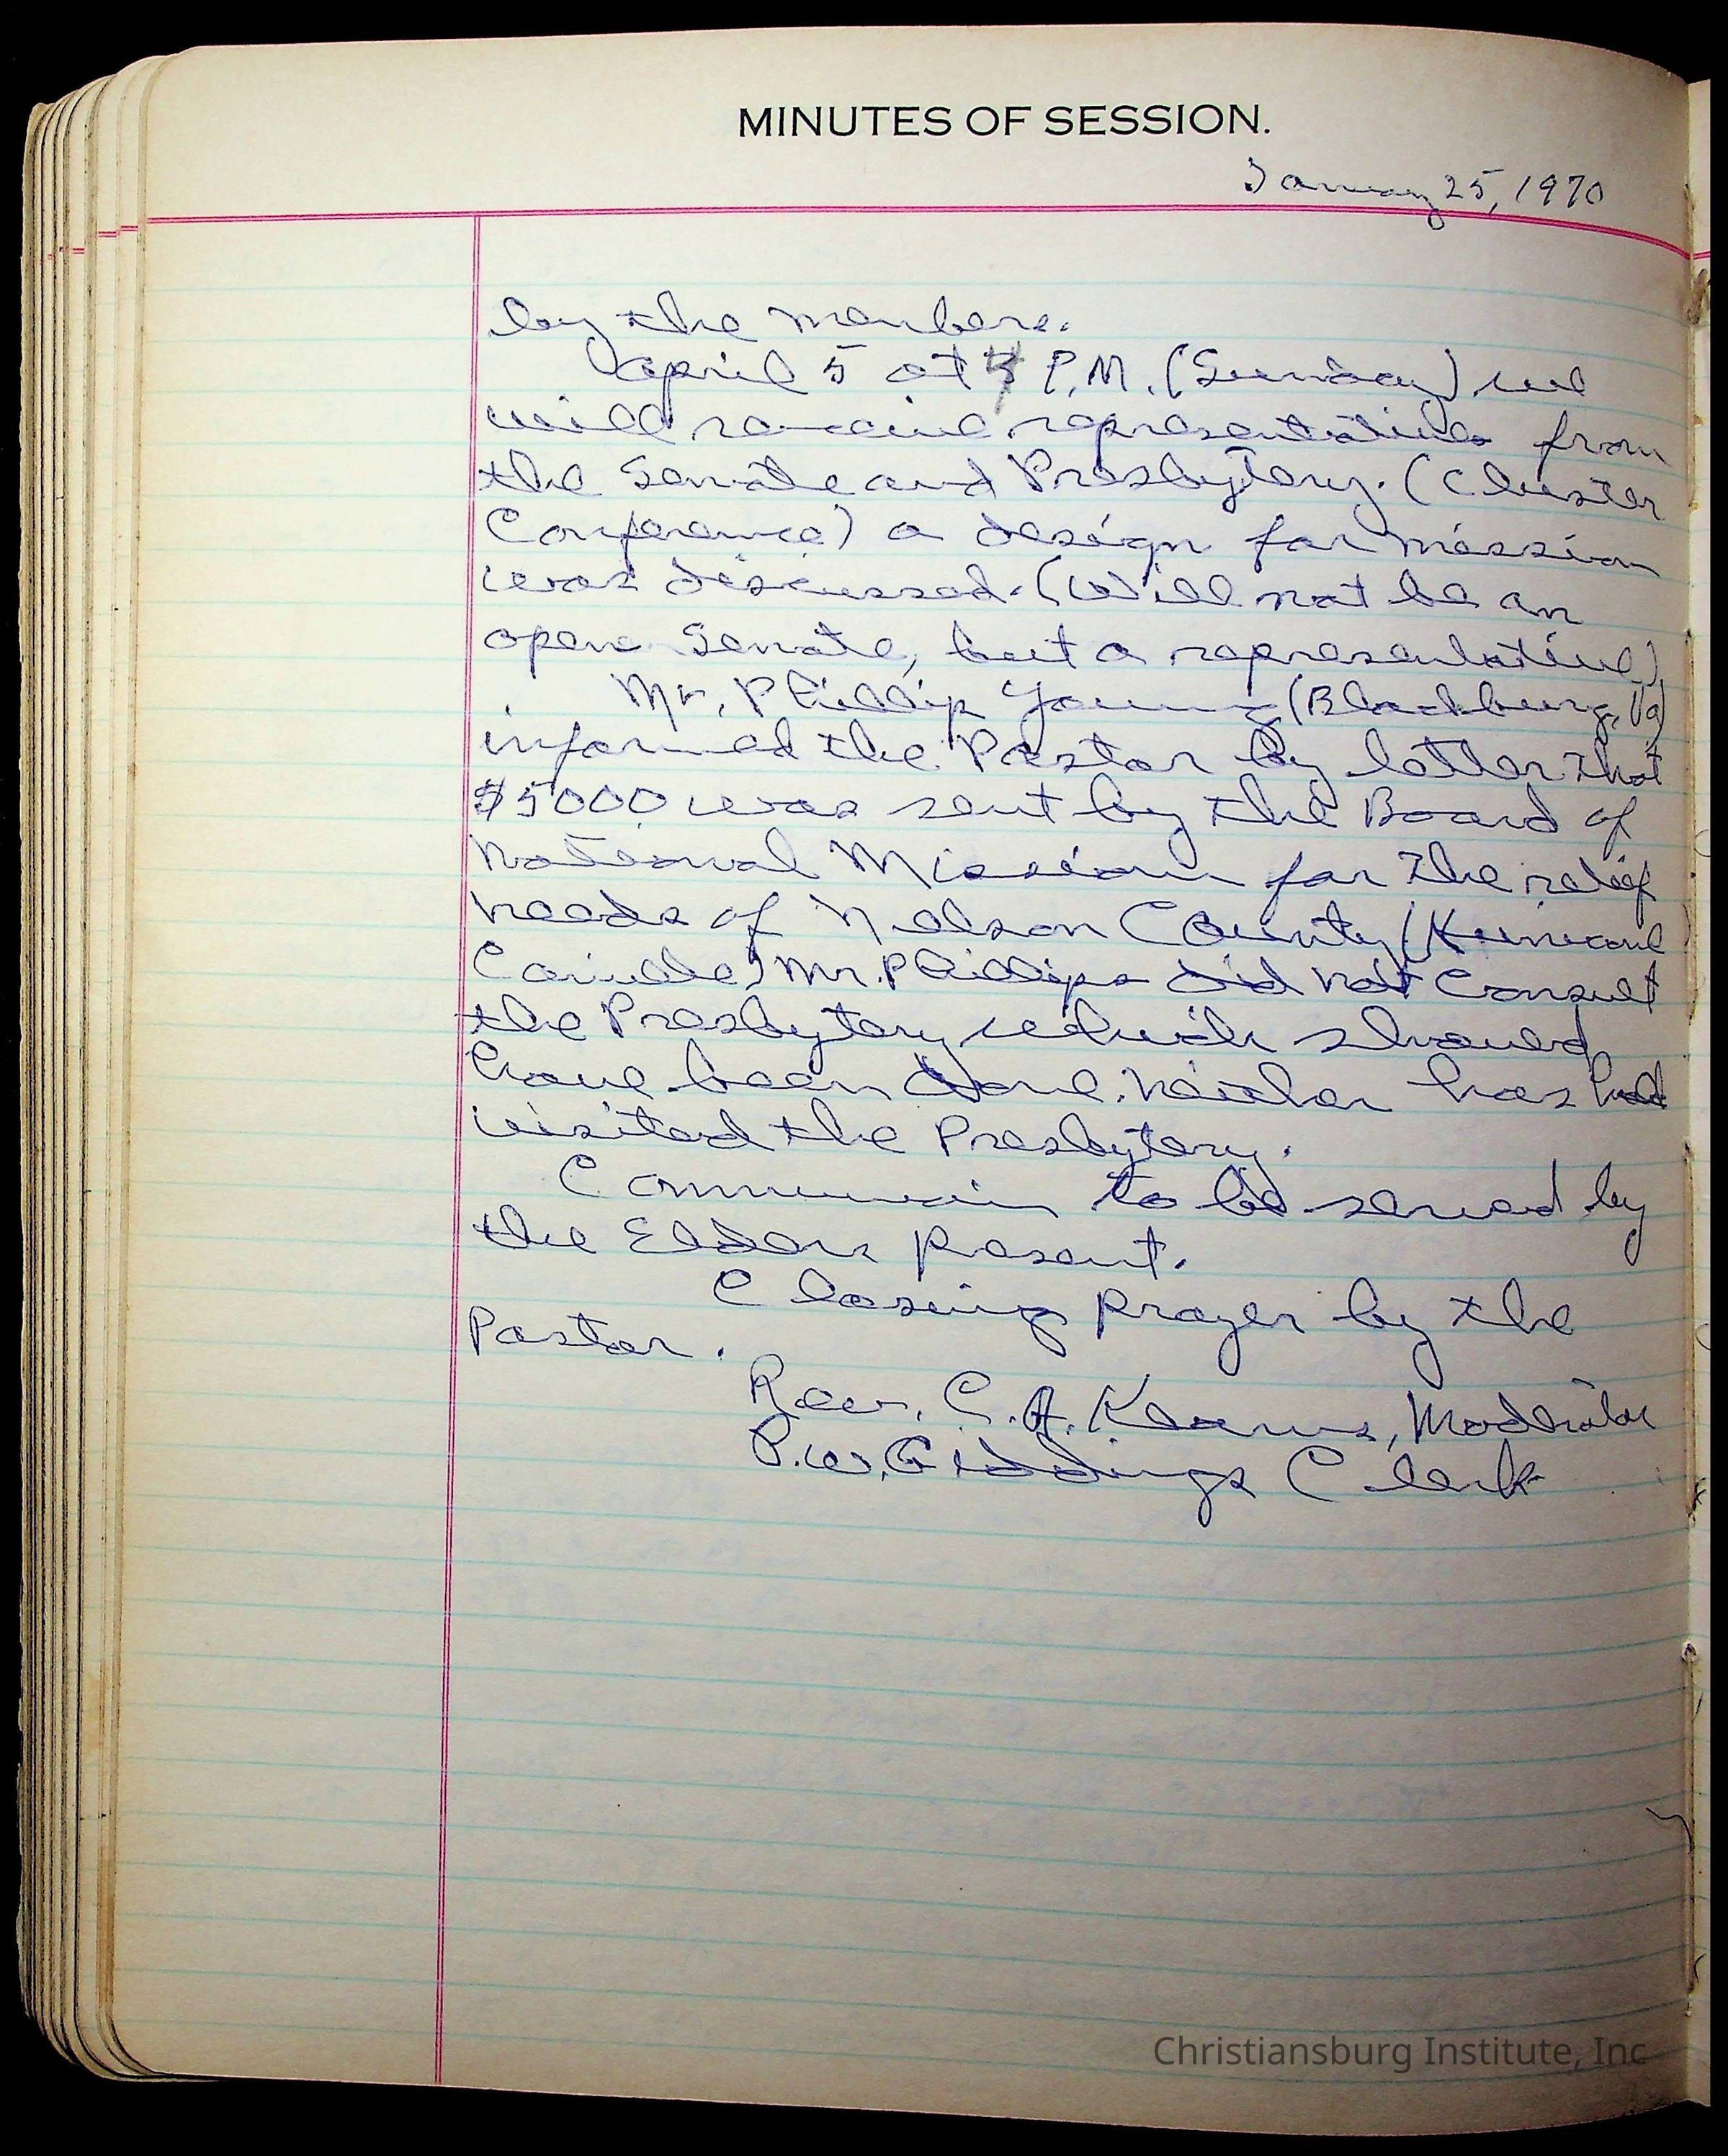 MINUTES OF SESSION.
January 25, 1970
by the members.
April 5 at 4 P.M. (Sunday) we
will re-ceive representatives from
the Senate and Presbytery. (Cluster
Conference) a design for mission
was discussed. (Will not be an
open Senate, but a representative)
Mr. Phillip Young (Blacksburg, Va)
informed the Pastor by letter that
$5000 was sent by the Board of
National Mission for the relief
needs of Nelson County (Hurricane
Camille) Mr. Phillips did not consult
the Presbytery which should
have been done. Neither has had
visited the Presbytery.
Communion to be served by
the Elders present.
Closing prayer by the
Pastor.
Rev. C. A. Kearns, Moderator
P.W. Giddings Clerk
Christiansburg Institute, Inc